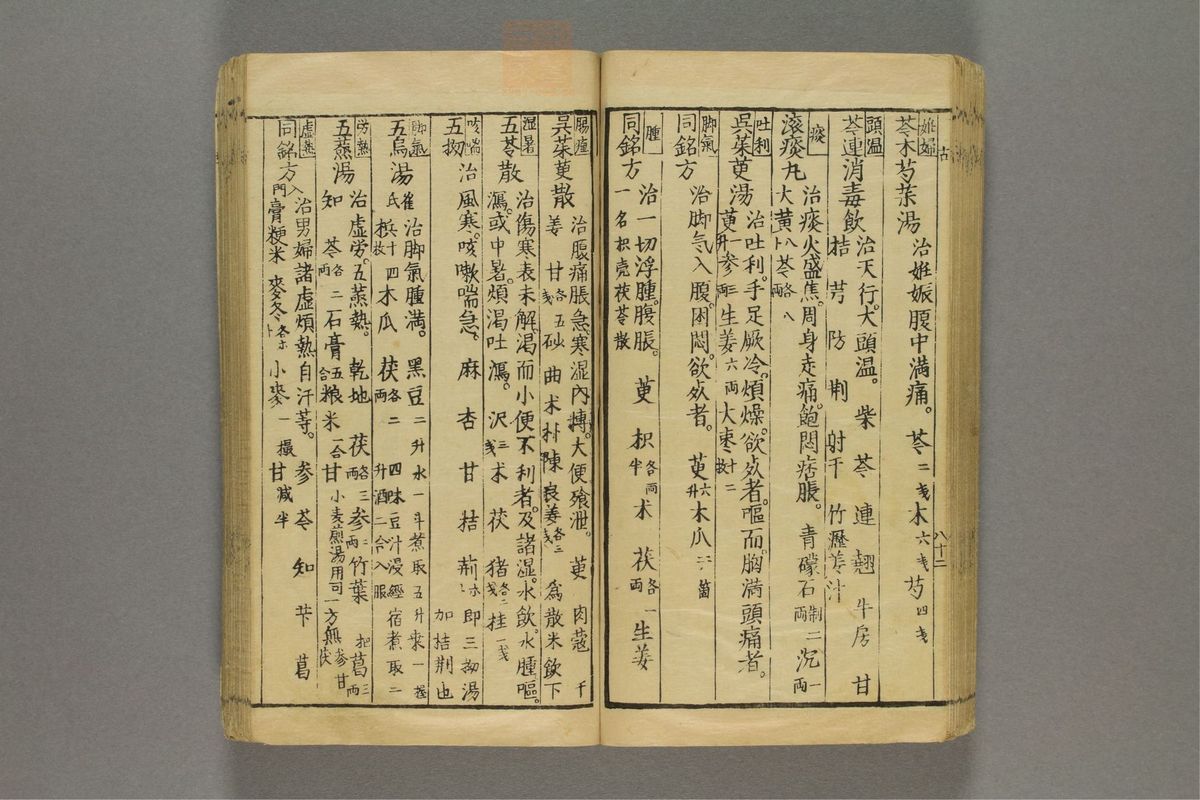 古
八十二
妊婦
苓朮芍茱湯 治妊娠腹中満痛。 苓二戔 朮六戔 芍四戔
頭温
苓連消毒飲 治天行。大頭温。 柴 苓 連 翹 牛房 甘
桔 芳 防 荆 射干 竹瀝姜汁
痰
滚痰丸 治痰火盛焦。周身走痛。飽悶痞脹。 青礞石両制二 沉一両
大黄 苓各八両
吐利
呉茱萸湯 治吐利。手足厥冷。煩燥。欲死者。嘔而。胸満頭痛者。
萸一升 参三両 生姜六両 大枣十二枚
脚氣
同銘方 治脚氣入腹。困悶。欲死者。 萸六升 木瓜二箇
腫
同銘方 治一切浮腫。腹脹。 萸 枳各半両 朮 茯各一両 生姜
一名枳壳茯苓散
腸瘇
呉茱萸散 治腹痛脹急。寒湿内摶。大便飱泄。 萸 肉蔻 干
姜 甘各五戔 砂 曲 朮 朴 陳 良姜各三戔 為散米飲下
湿暑
五苓散 治傷寒表未解。渴而小便不利者。及諸湿。水飲。水腫嘔。
瀉。或中暑。煩渴吐瀉。 沢三戔 朮 茯 猪各二戔 桂一戔
咳喘
五拗 治風寒。咳嗽喘急。 麻 杏 甘 桔 荊 即三拗湯
加桔荆也
脚氣
五烏湯 崔氏 治脚氣腫満。 黑豆二升 水一斗煮取五升桒一握
槟十四枚 木瓜 茯各二両 四味豆汁浸經宿煮取二
升酒二合入服
労熱
五蒸湯 治虚労。五蒸熱。 乾地 茯各三両 参二両 竹葉二把 葛三両
知 苓各二両 石膏五合 粮米一合 甘 小麦煎湯用可一方無参甘茯
虚蒸
同銘方 入門 治男婦諸虚煩熱自汗等。 参 苓 知 苄 葛
膏粳米 麥冬 小麥一撮 甘減半